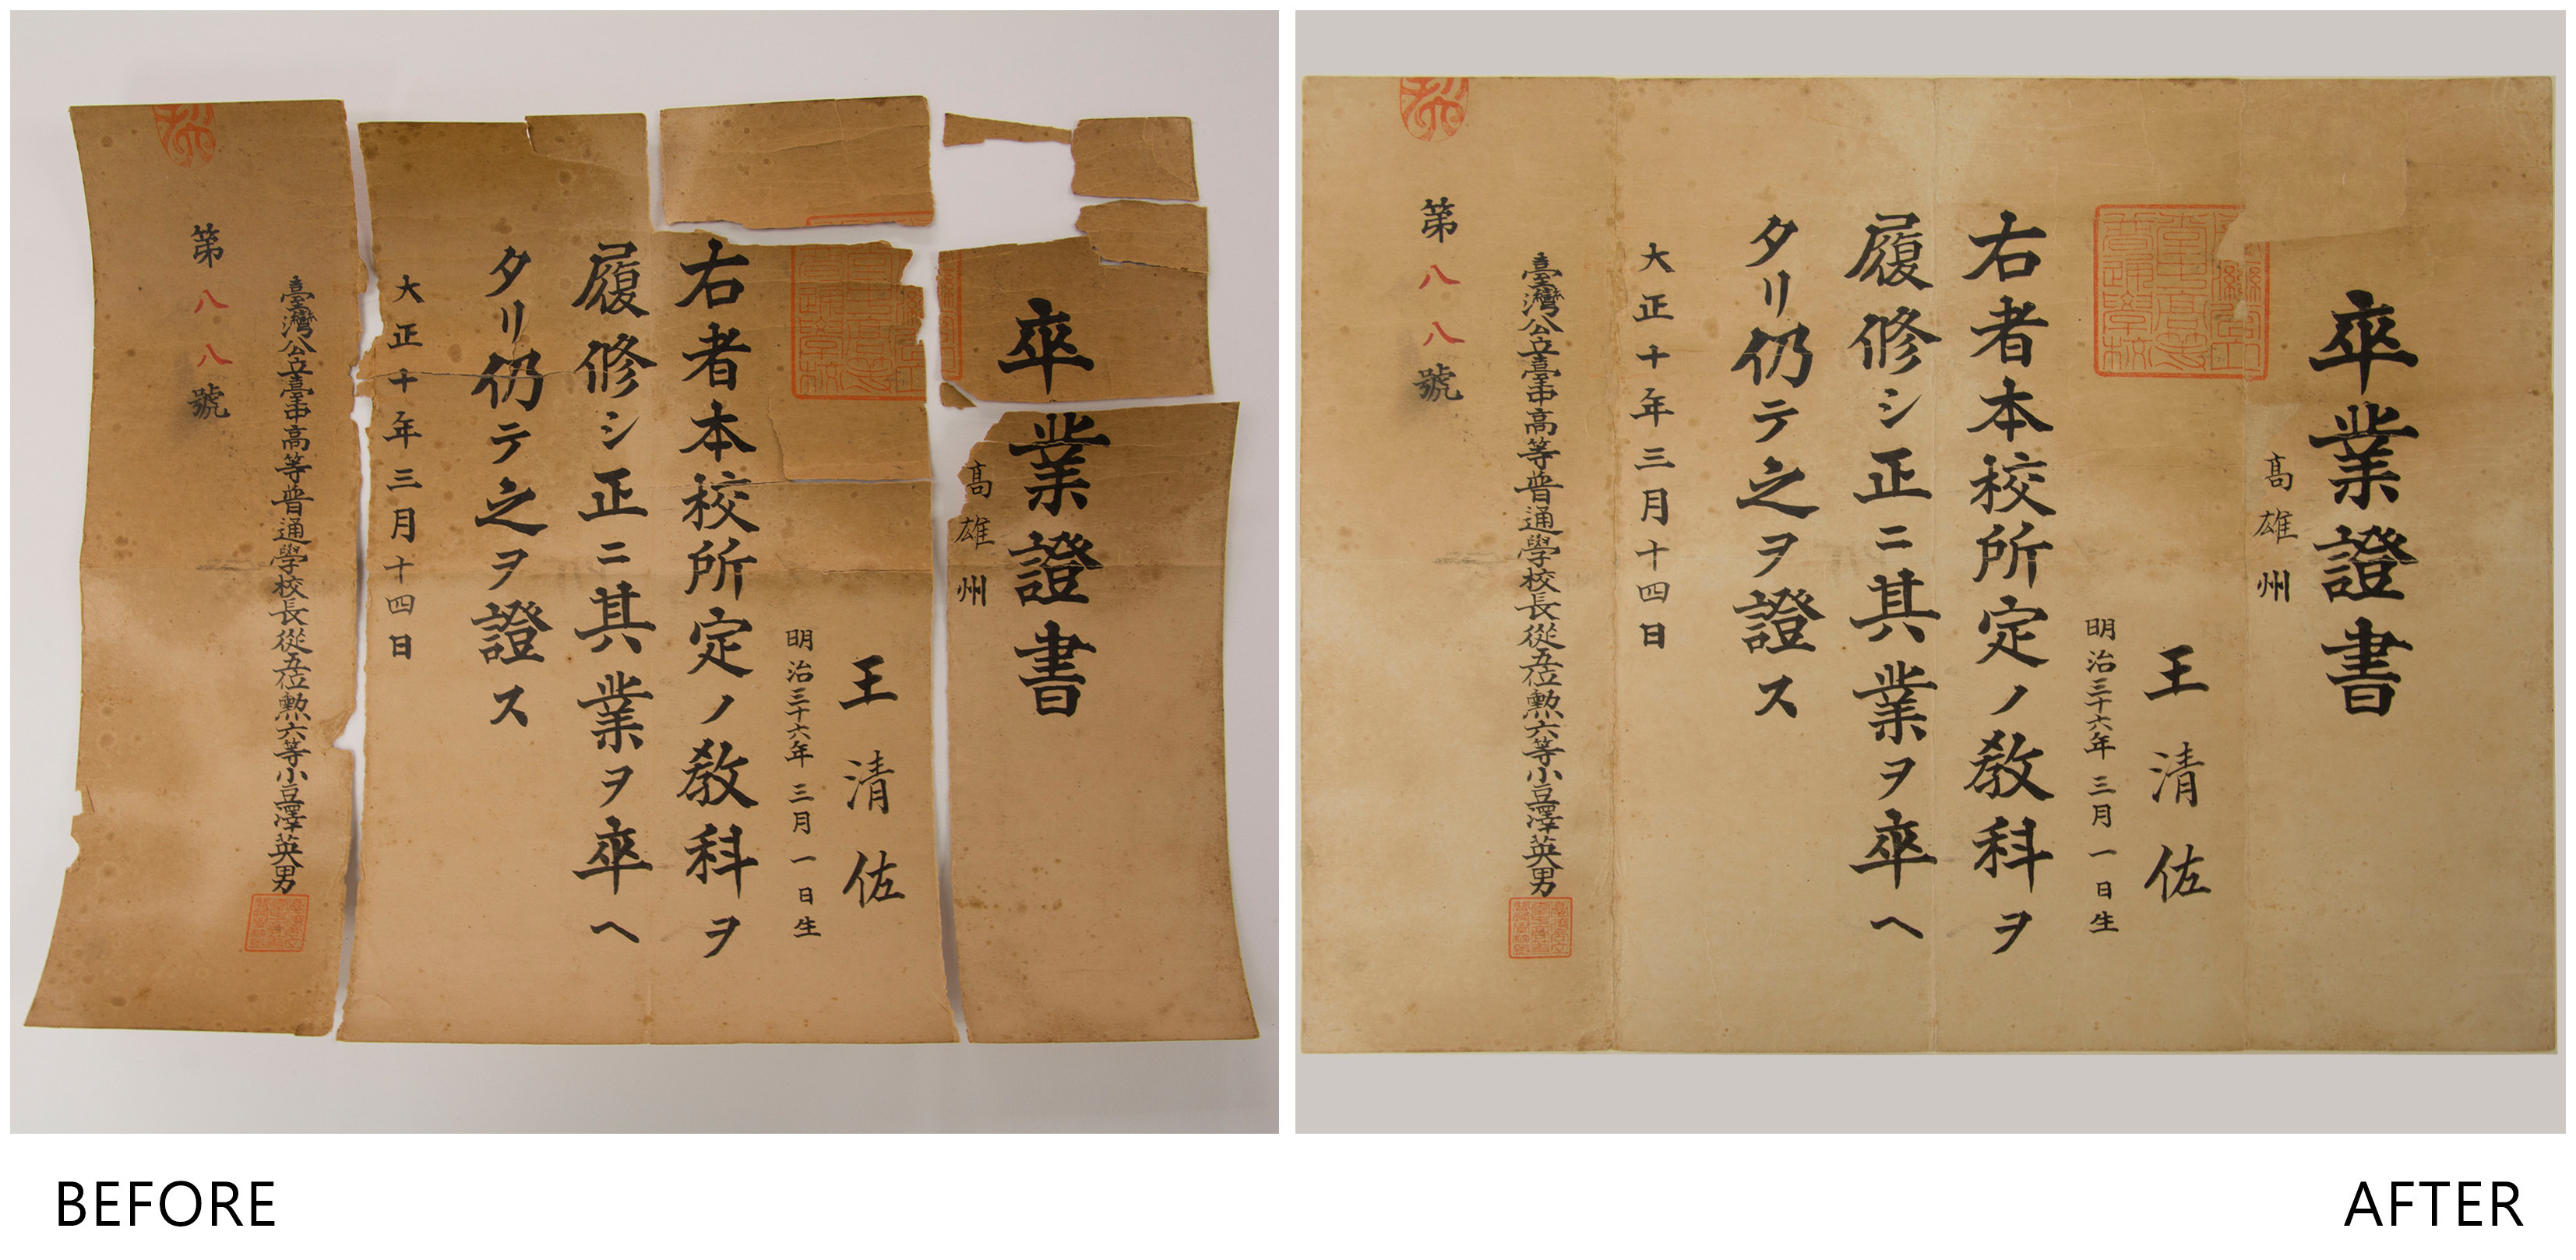 卒業證書
高雄州
王清佐
明治三十六年三月一日生
右者本校所定ノ教科ヲ
履修シ正ニ其業ヲ卒ヘ
タリ仍テ之ヲ證ス
大正十年三月十四日
臺灣公立臺中高等普通學校長從五位勲六等小豆澤英男
第八八號
BEFORE
卒業證書
高雄州
王清佐
明治三十六年三月一日生
右者本校所定ノ教科ヲ
履修シ正ニ其業ヲ卒ヘ
タリ仍テ之ヲ證ス
大正十年三月十四日
臺灣公立臺中高等普通學校長從五位勲六等小豆澤英男
第八八號
AFTER